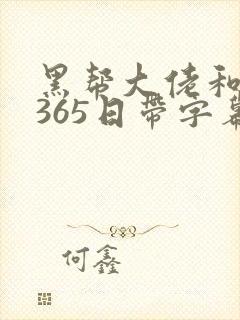 黑帮大佬和
365日带字幕
何鑫